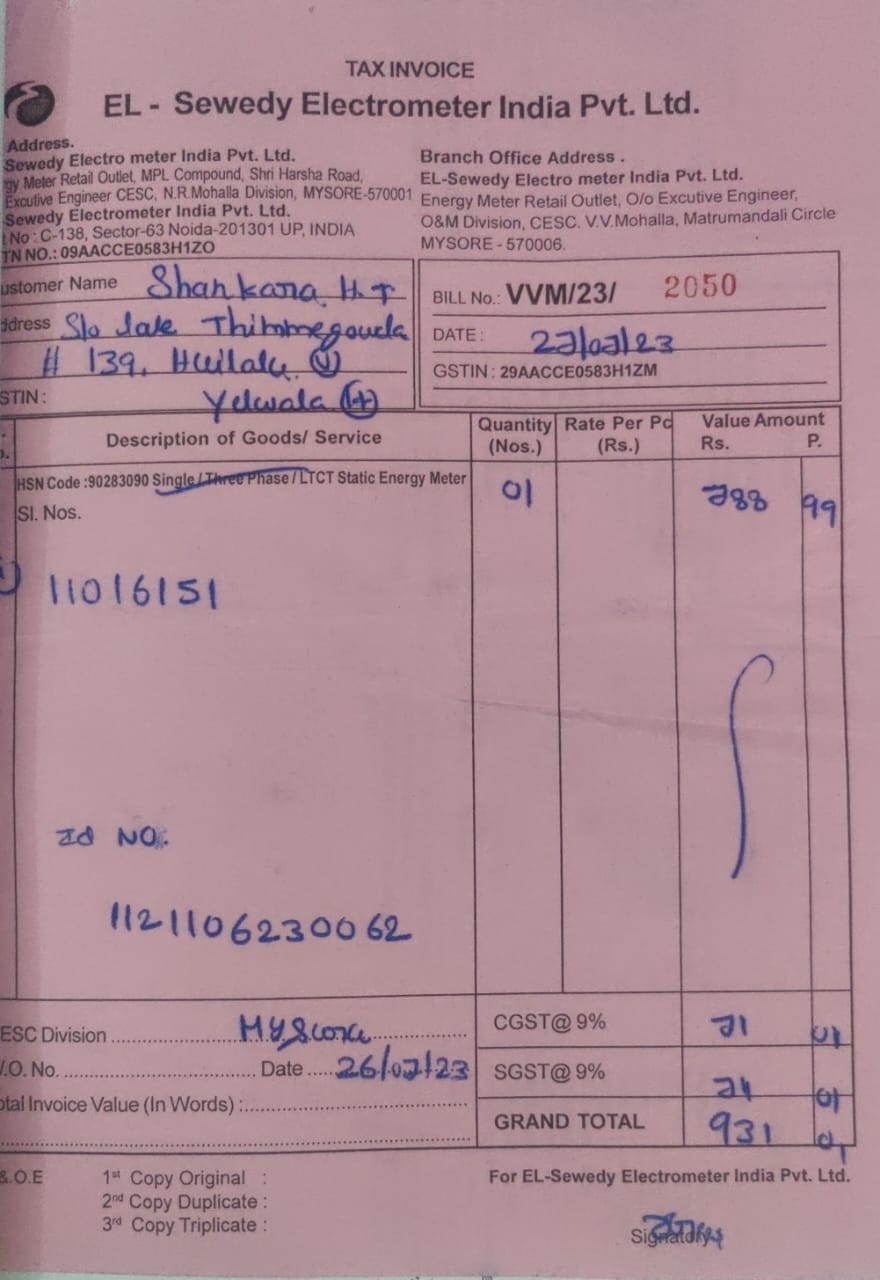 TAX INVOICE
EL - Sewedy Electrometer India Pvt. Ltd.
Address.
Sewedy Electro meter India Pvt. Ltd.
gy Meter Retail Outlet, MPL Compound, Shri Harsha Road,
Excutive Engineer CESC, N.R.Mohalla Division, MYSORE-570001
Sewedy Electrometer India Pvt. Ltd.
No : C-138, Sector-63 Noida-201301 UP, INDIA
TN NO.: 09AACCE0583H1ZO
Branch Office Address .
EL-Sewedy Electro meter India Pvt. Ltd.
Energy Meter Retail Outlet, O/o Excutive Engineer,
O&M Division, CESC. V.V.Mohalla, Matrumandali Circle
MYSORE - 570006.
ustomer Name Shankara. H.T
ddress S/o late Thimmegouda
# 139, Huilalu (V)
STIN : Yelwala (H)
BILL No.: VVM/23/ 2050
DATE : 27/07/23
GSTIN : 29AACCE0583H1ZM
Description of Goods/ Service
Quantity (Nos.)
Rate Per Pc (Rs.)
Value Amount
Rs. P.
HSN Code :90283090 Single / Three Phase / LTCT Static Energy Meter 01 788 99
Sl. Nos.
11016151
Id NO.
1121106230062
ESC Division .......... Mysore
CGST@ 9% 71 01
.O. No. .......... Date ..... 26/07/23
SGST@ 9% 71 01
tal Invoice Value (In Words) :..........
GRAND TOTAL 931 01
&.O.E
1st Copy Original :
2nd Copy Duplicate :
3rd Copy Triplicate :
For EL-Sewedy Electrometer India Pvt. Ltd.
Signatory